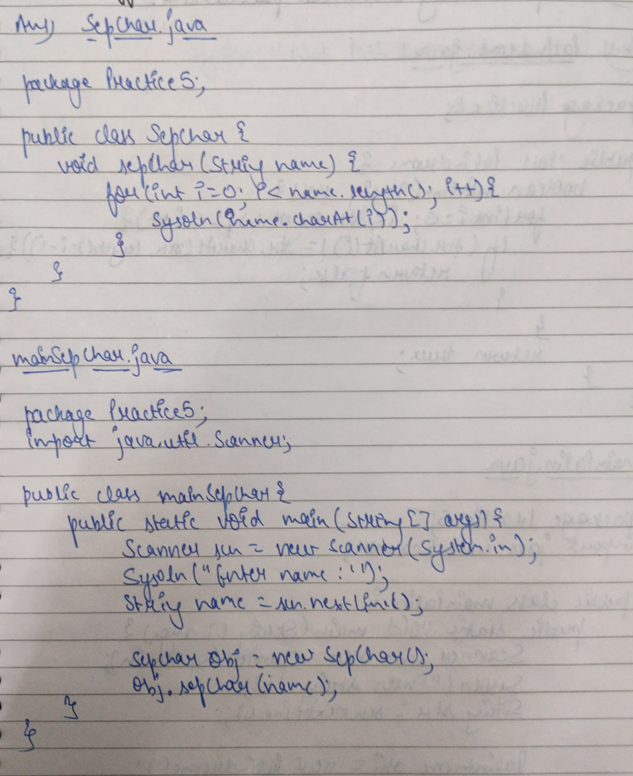 Ans) SepChar.java
package Practice5;
public class SepChar {
void sepChar(String name) {
for(int i=0; i< name.length(); i++){
Sysoln(name.charAt(i));
}
}
}
mainSepChar.java
package Practice5;
import java.util.Scanner;
public class mainSepChar {
public static void main(String[] args){
Scanner sc = new Scanner(System.in);
Sysoln("Enter name :");
String name = sc.nextLine();
SepChar obj = new SepChar();
obj.sepChar(name);
}
}